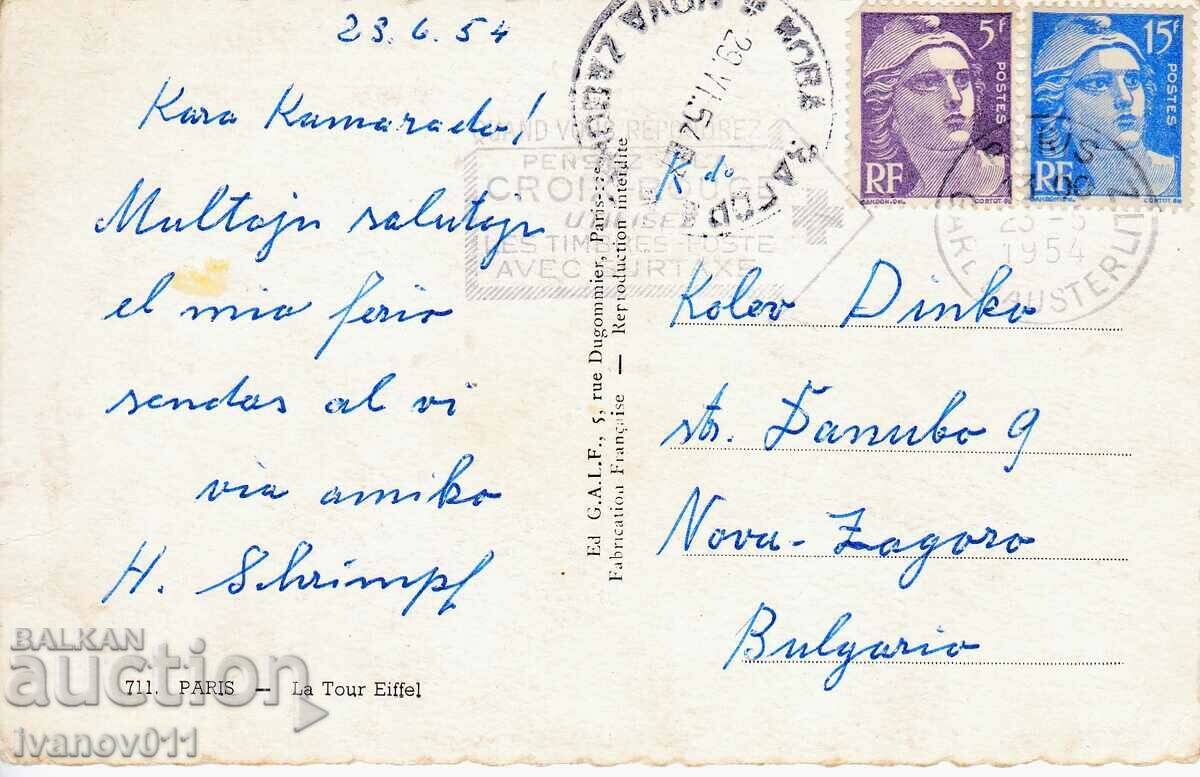 23.6.54
Kara Kamarado!
Multajn salutojn
el mia ferio
sendas al vi
via amiko
H. Schrimpf
711. PARIS — La Tour Eiffel
Ed G.A.L.F., 5, rue Dugommier, Paris
Fabrication Française — Reproduction interdite
QUAND VOUS RÉPONDREZ
PENSEZ
CROIX-ROUGE
UTILISEZ
LES TIMBRES-POSTE
AVEC SURTAXE
НОВА ЗАГОРА
NOVA ZAGORA
29.VI.54
5f
POSTES
RF
GANDON.DEL.
CORTOT.SC
15f
POSTES
RF
GANDON.DEL.
CORTOT.SC
PARIS
1954
GARE AUSTERLITZ
K-do
Kolev Dinko
str. Danubo 9
Nova-Zagoro
Bulgario
BALKAN
auction
ivanov011